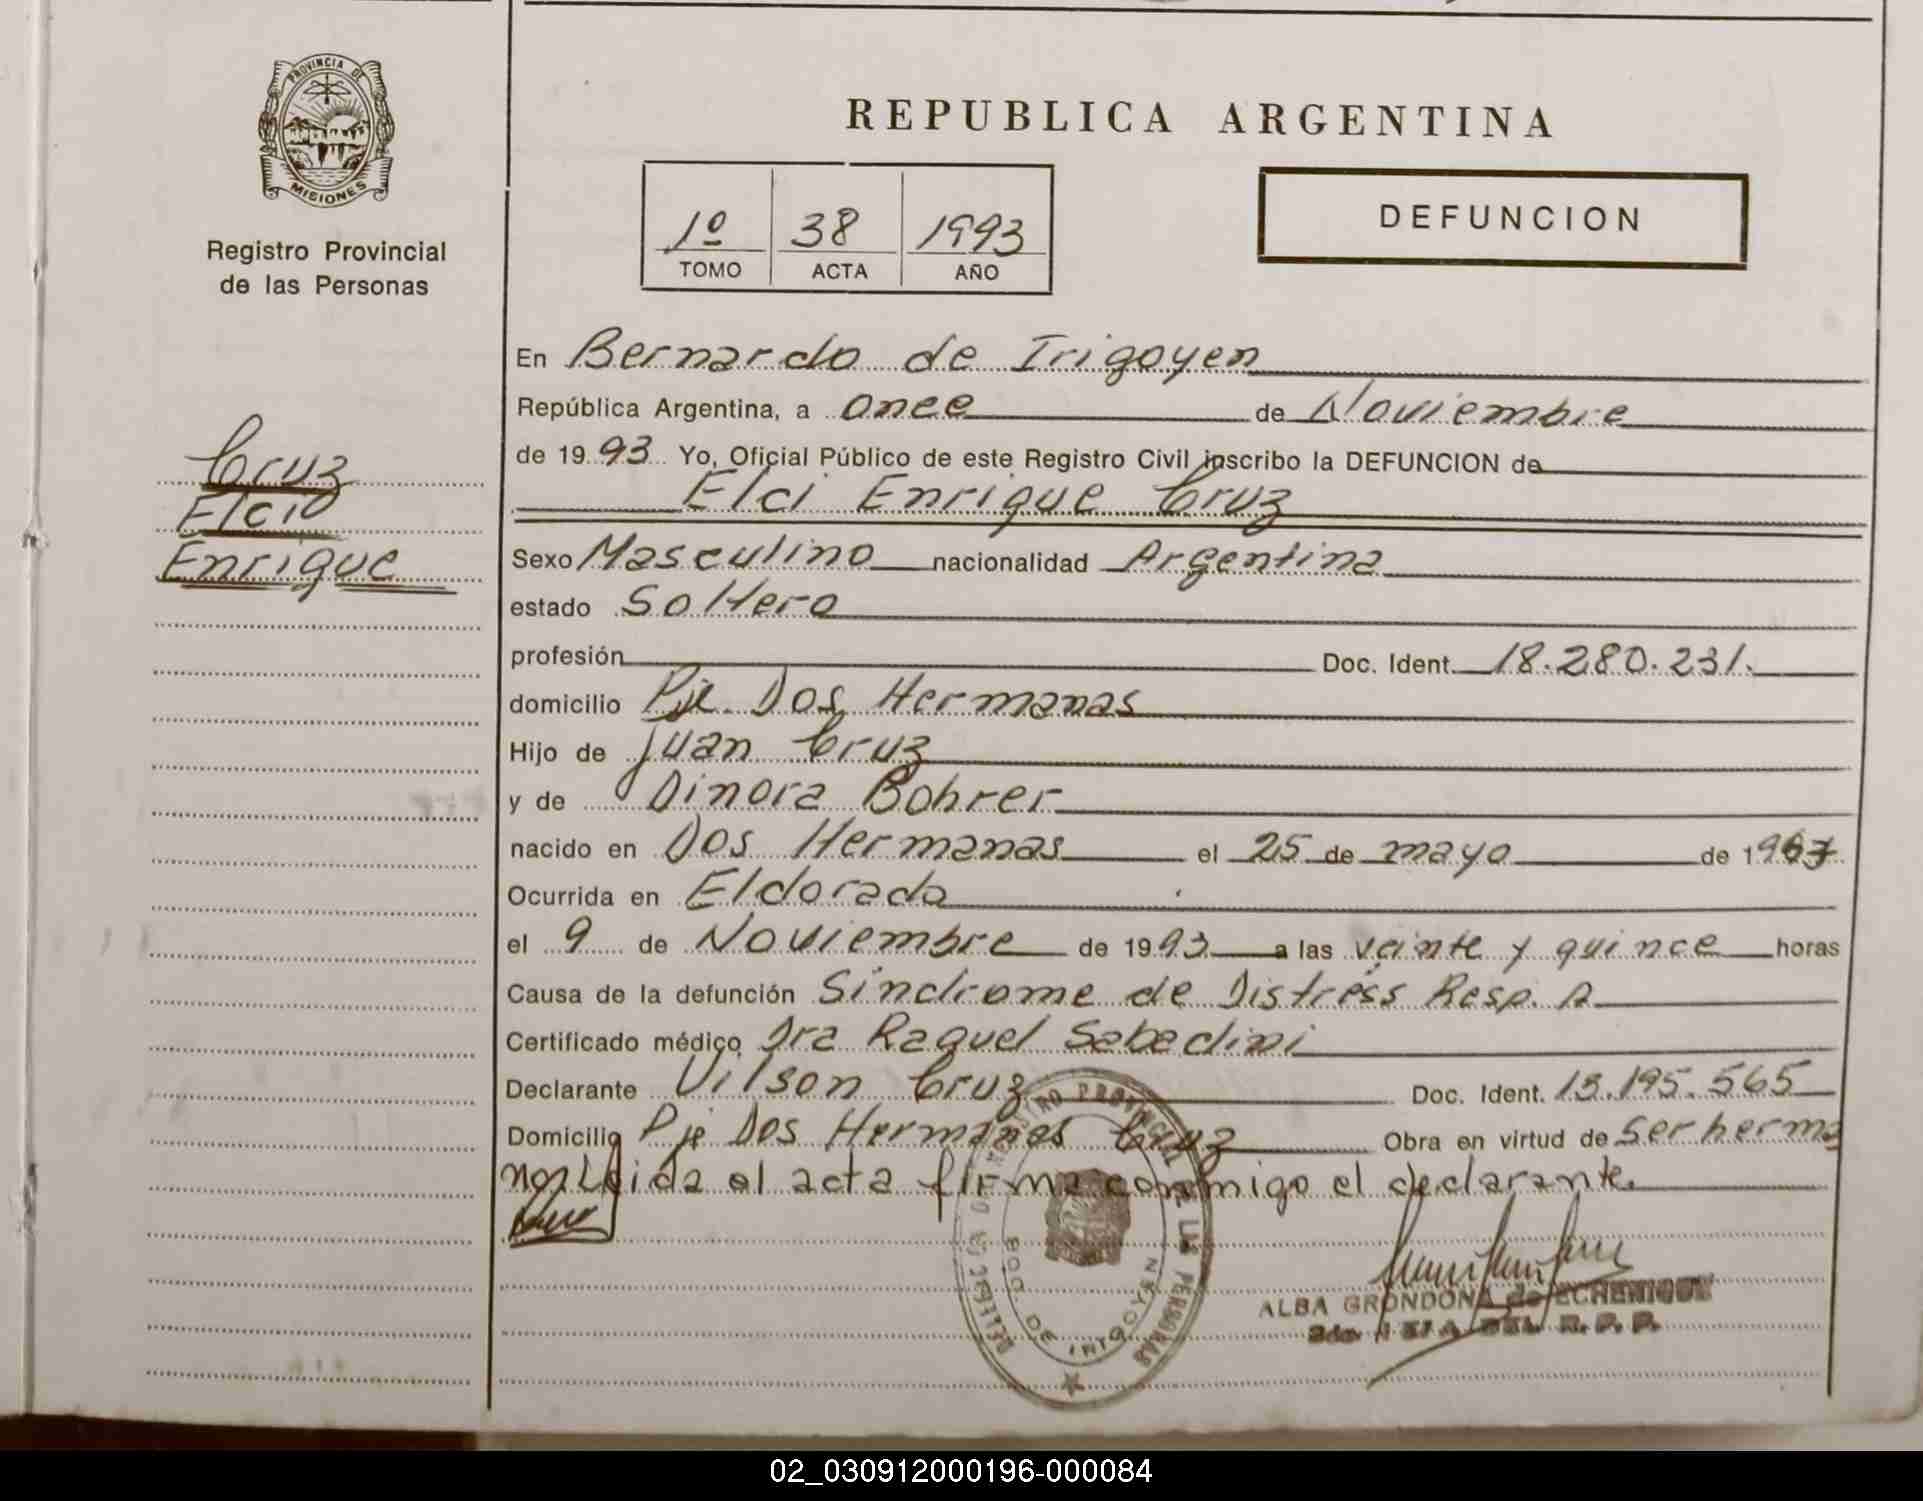 PROVINCIA DE
MISIONES
Registro Provincial
de las Personas
Cruz
Elci
Enrique
REPUBLICA ARGENTINA
1º 38 1993
TOMO ACTA AÑO
DEFUNCION
En Bernardo de Irigoyen
República Argentina, a once de Noviembre
de 1993 Yo, Oficial Público de este Registro Civil inscribo la DEFUNCION de
Elci Enrique Cruz
Sexo Masculino nacionalidad Argentina
estado Soltero
profesión Doc. Ident. 18.280.231.
domicilio Pje. Dos Hermanas
Hijo de Juan Cruz
y de Dinora Bohrer
nacido en Dos Hermanas el 25 de mayo de 1967
Ocurrida en Eldorado
el 9 de Noviembre de 1993 a las veinte y quince horas
Causa de la defunción Sindrome de Distréss Resp. A
Certificado médico Dra Raquel Sabedini
Declarante Vilson Cruz Doc. Ident. 13.195.565
Domicilio Pje Dos Hermanas Cruz Obra en virtud de ser herma
no, Leida el acta firma conmigo el declarante.
REGISTRO PROVINCIAL DE LAS PERSONAS
BDO. DE IRIGOYEN
ALBA GRONDONA de ECHENIQUE
DEL R. P. P.
02_030912000196-000084